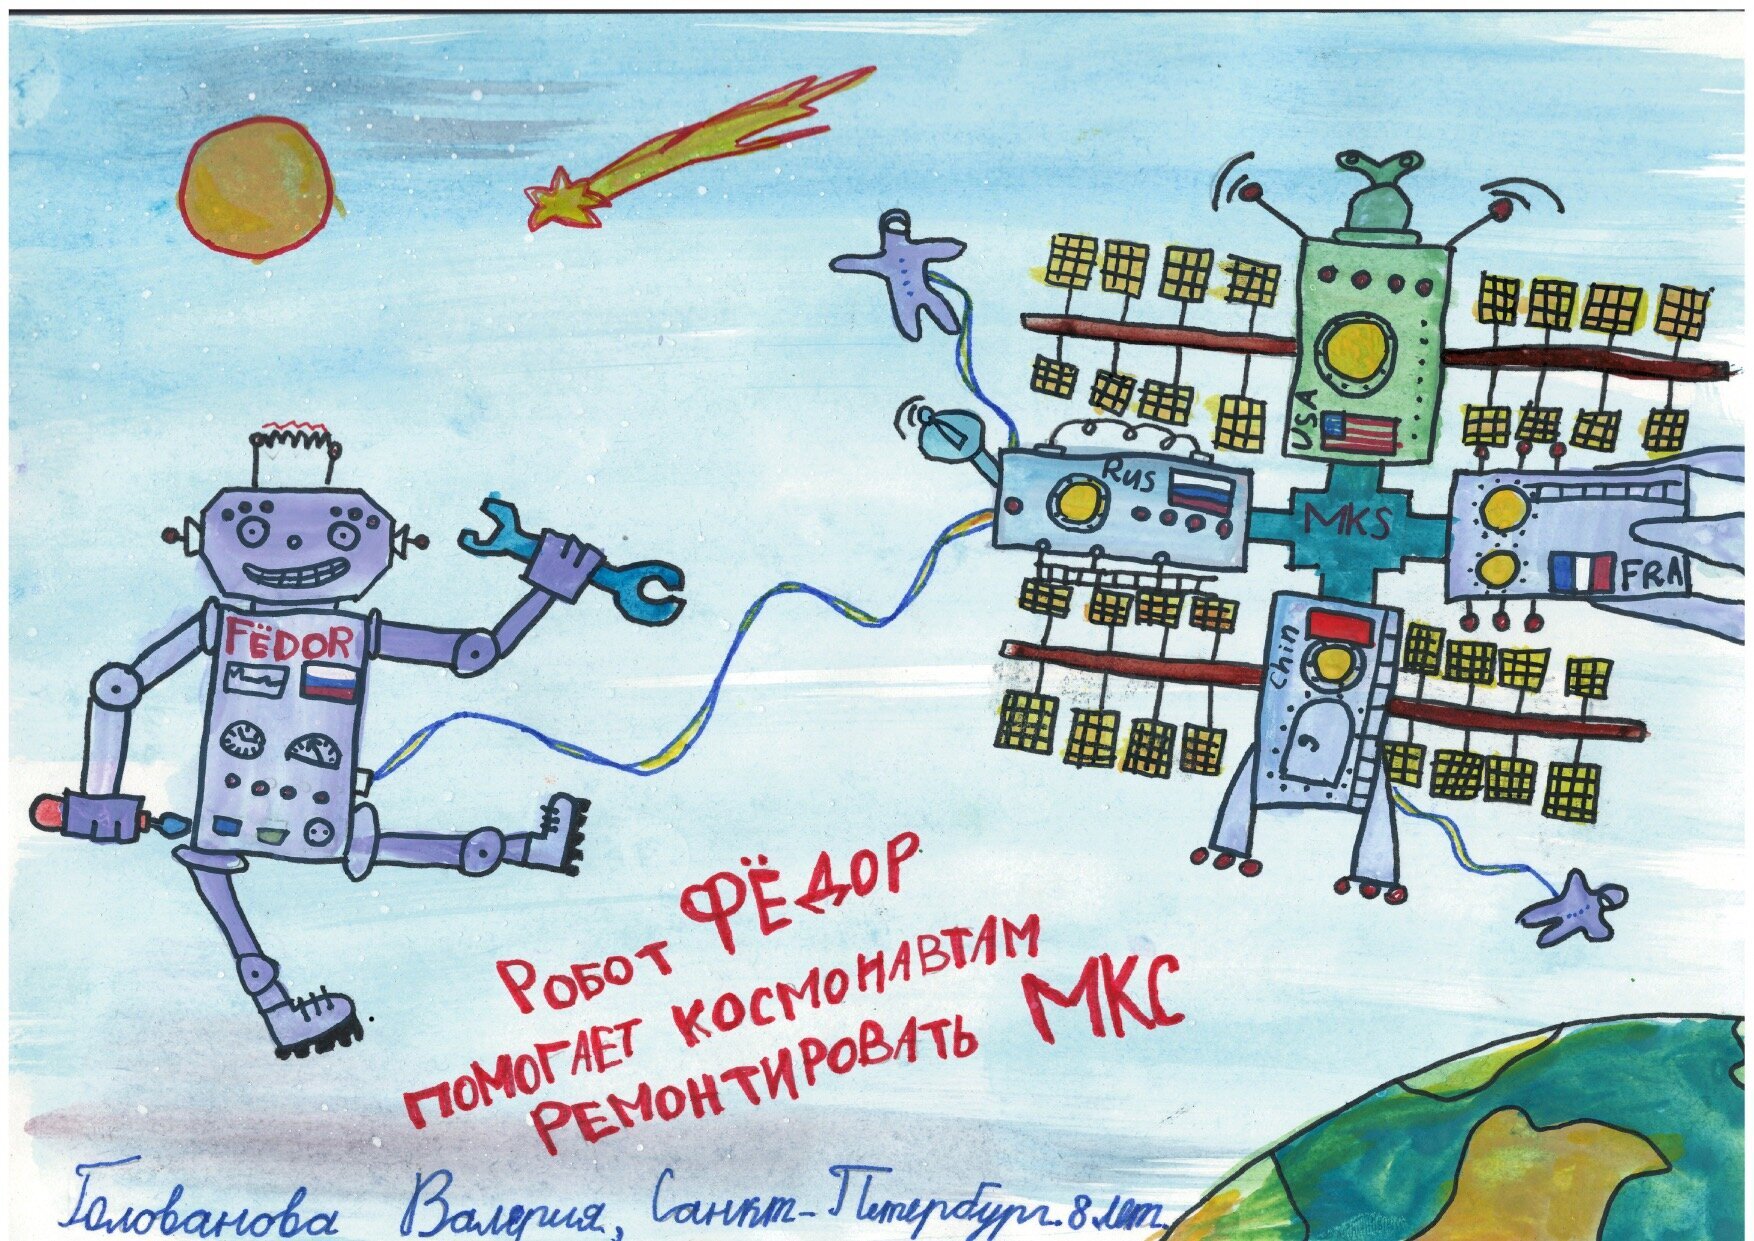 USA
Rus
MKS
FRA
Chin
FЁDOR
РОБОТ ФЁДОР
ПОМОГАЕТ КОСМОНАВТАМ
РЕМОНТИРОВАТЬ МКС
Голованова Валерия, Санкт-Петербург. 8 лет.